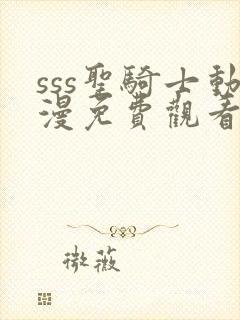 sss聖騎士動
漫免費觀看
微薇